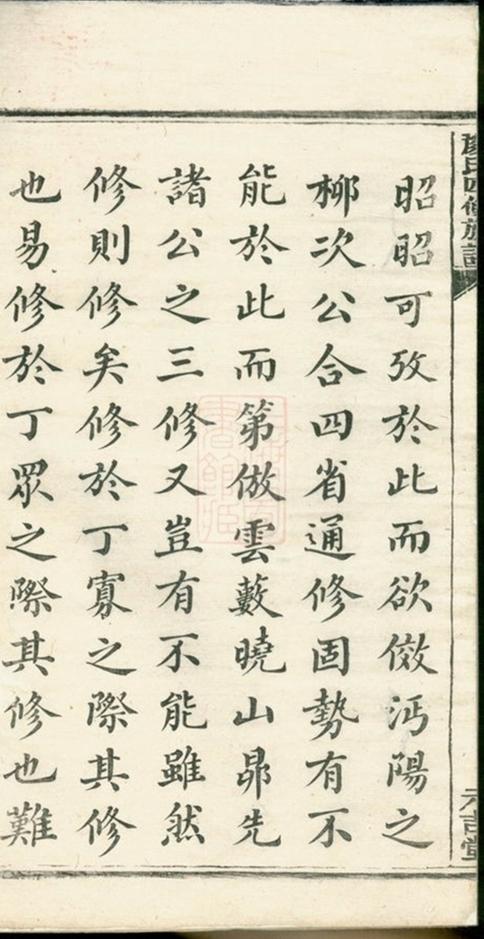 氏四修族譜
昭昭可攷於此而欲倣沔陽之
柳次公合四省通修固勢有不
能於此而第倣雲藪曉山昴先
諸公之三修又豈有不能雖然
修則修矣修於丁寡之際其修
也易修於丁眾之際其修也難